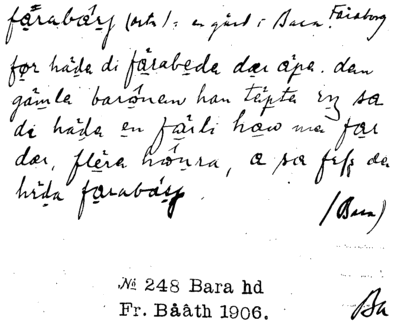 fårabårj (ortn.): en gård i Bara. Fåraborg
før hada di fårabeda dær åpa. dan
gåmla barónen han tåpta ... sa
di hada en fårli how mæ får
dær, fléra hónra, a sa ... de
heda farabårj.
(Bara)
№ 248 Bara hd
Fr. Bååth 1906.
Ba